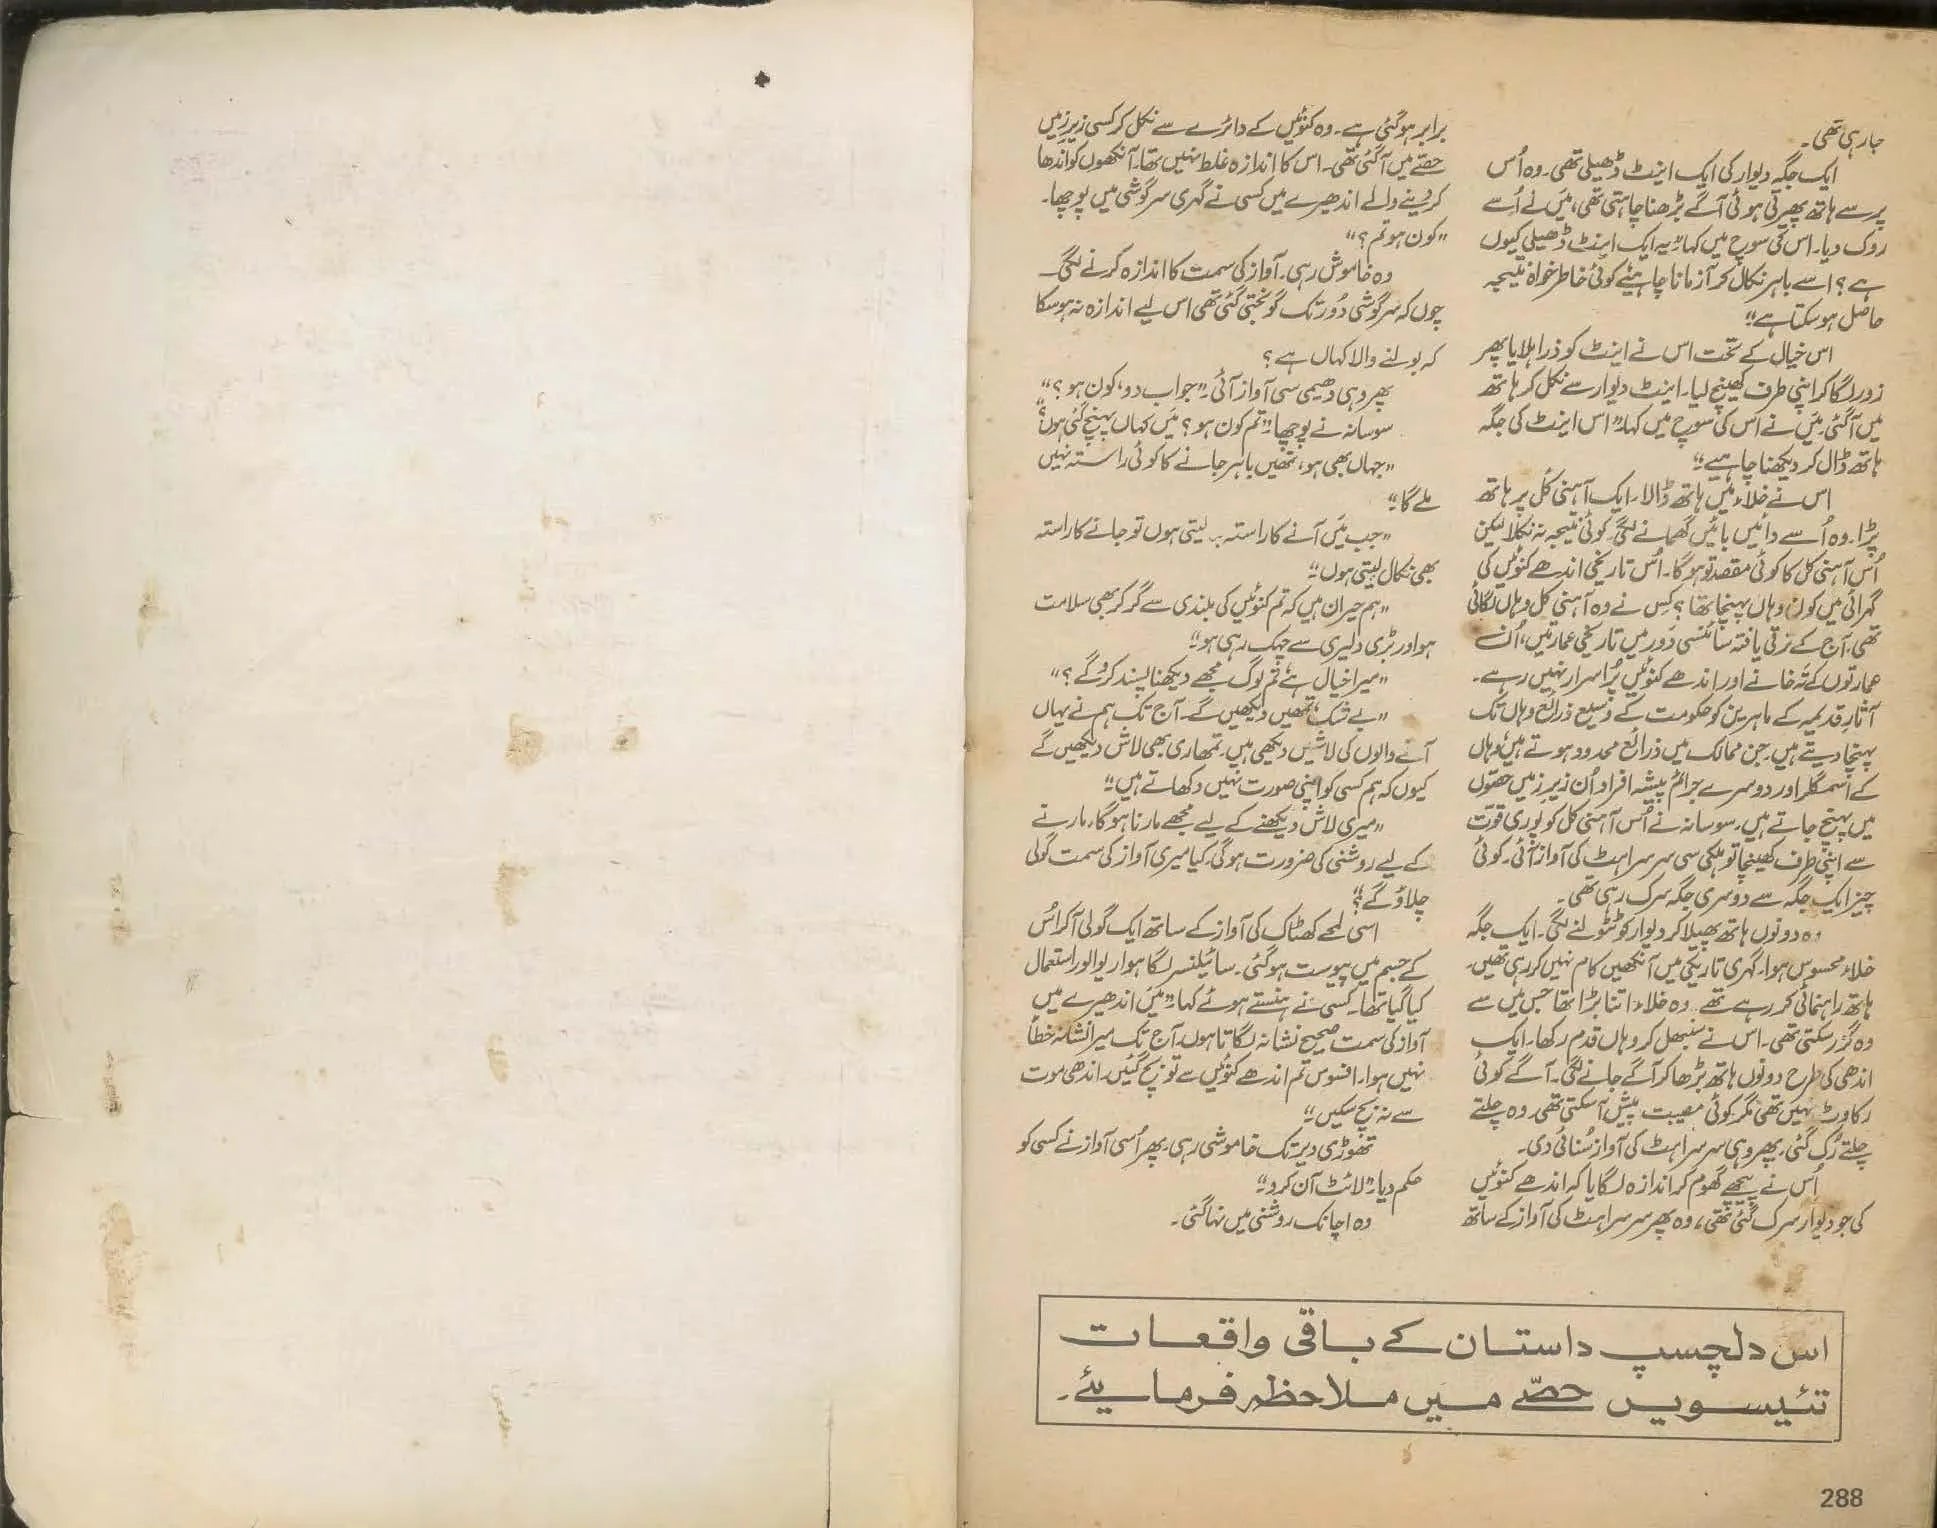 جا رہی تھی۔
ایک جگہ دیوار کی ایک اینٹ ڈھیلی تھی۔ وہ اُس
پر سے ہاتھ پھیرتی ہوئی آگے بڑھنا چاہتی تھی، میَں نے اُسے
روک دیا۔ اس کی سوچ میں کہا: "یہ ایک اینٹ ڈھیلی کیوں
ہے؟ اسے باہر نکال کر آزمانا چاہئیے کوئی خاطر خواہ نتیجہ
حاصل ہو سکتا ہے"
اس خیال کے تحت اس نے اینٹ کو ذرا ہلایا پھر
زور لگا کر اپنی طرف کھینچ لیا۔ اینٹ دیوار سے نکل کر ہاتھ
میں آگئی۔ میَں نے اس کی سوچ میں کہا: "اس اینٹ کی جگہ
ہاتھ ڈال کر دیکھنا چاہیے"
اس نے خلاء میں ہاتھ ڈالا۔ ایک آہنی کُل پر ہاتھ
پڑا۔ وہ اُسے دائیں بائیں گھمانے لگی۔ کوئی نتیجہ نہ نکلا لیکن
اُس آہنی کل کا کوئی مقصد تو ہوگا۔ اُس تاریخی اندھے کنوئیں کی
گہرائی میں کون وہاں پہنچا تھا؟ کِس نے وہ آہنی کل وہاں لگائی
تھی، آج کے ترقی یافتہ سائنسی دَور میں تاریخی عمارتیں، اُن
عمارتوں کے تہ خانے اور اندھے کنوئیں پُراسرار نہیں رہے۔
آثارِ قدیمہ کے ماہرین کو حکومت کے وسیع ذرائع وہاں تک
پہنچا دیتے ہیں۔ جن ممالک میں ذرائع محدود ہوتے ہیں، وہاں
کے اسمگلر اور دوسرے جرائم پیشہ افراد اُن زیرِ زمیں حصّوں
میں پہنچ جاتے ہیں۔ سوسانہ نے اُس آہنی کل کو پوری قوت
سے اپنی طرف کھینچا تو ہلکی سی سرسراہٹ کی آواز آئی۔ کوئی
چیز ایک جگہ سے دوسری جگہ سرک رہی تھی۔
وہ دونوں ہاتھ پھیلا کر دیوار کو ٹٹولنے لگی۔ ایک جگہ
خلاء محسوس ہوا۔ گہری تاریکی میں آنکھیں کام نہیں کر رہی تھیں۔
ہاتھ راہنمائی کر رہے تھے۔ وہ خلاء اتنا بڑا تھا جس میں سے
وہ گزر سکتی تھی۔ اس نے سنبھل کر وہاں قدم رکھا۔ ایک
اندھی کی طرح دونوں ہاتھ بڑھا کر آگے جانے لگی۔ آگے کوئی
رکاوٹ نہیں تھی مگر کوئی مصیبت پیش آ سکتی تھی۔ وہ چلتے
چلتے رُک گئی۔ پھر وہی سرسراہٹ کی آواز سُنائی دی۔
اُس نے پیچھے گھوم کر اندازہ لگایا کہ اندھے کنوئیں
کی جو دیوار سرک گئی تھی، وہ پھر سرسراہٹ کی آواز کے ساتھ
برابر ہوگئی ہے۔ وہ کنوئیں کے دائرے سے نکل کر کسی زیرِ زمیں
حصّے میں آگئی تھی۔ اس کا اندازہ غلط نہیں تھا۔ آنکھوں کو اندھا
کر دینے والے اندھیرے میں کسی نے گہری سرگوشی میں پوچھا۔
"کون ہو تم؟"
وہ خاموش رہی۔ آواز کی سمت کا اندازہ کرنے لگی۔
چوں کہ سرگوشی دُور تک گونجتی گئی تھی اس لیے اندازہ نہ ہو سکا
کہ بولنے والا کہاں ہے؟
پھر وہی دھیمی سی آواز آئی۔ "جواب دو، کون ہو؟"
سوسانہ نے پوچھا: "تم کون ہو؟ میَں کہاں پہنچ گئی ہوں؟"
"جہاں بھی ہو، تمھیں باہر جانے کا کوئی راستہ نہیں
ملے گا"
"جب میَں آنے کا راستہ لیتی ہوں تو جانے کا راستہ
بھی نکال لیتی ہوں"
"ہم حیران ہیں کہ تم کنوئیں کی بلندی سے گر کر بھی سلامت
ہو اور بڑی دلیری سے چہک رہی ہو"
"میرا خیال ہے، تم لوگ مجھے دیکھنا پسند کرو گے؟"
"بے شک تمھیں دیکھیں گے۔ آج تک ہم نے یہاں
آنے والوں کی لاشیں دیکھی ہیں۔ تمھاری بھی لاش دیکھیں گے
کیوں کہ ہم کسی کو اپنی صورت نہیں دکھاتے ہیں"
"میری لاش دیکھنے کے لیے مجھے مارنا ہوگا، مارنے
کے لیے روشنی کی ضرورت ہوگی۔ کیا میری آواز کی سمت گولی
چلاؤ گے؟"
اسی لمحے کھٹاک کی آواز کے ساتھ ایک گولی آکر اُس
کے جسم میں پیوست ہوگئی۔ سائیلنسر لگا ہوا ریوالور استعمال
کیا گیا تھا۔ کسی نے ہنستے ہوئے کہا: "میَں اندھیرے میں
آواز کی سمت صحیح نشانہ لگاتا ہوں۔ آج تک میرا نشانہ خطا
نہیں ہوا۔ افسوس تم اندھے کنوئیں سے تو بچ گئیں۔ اندھی موت
سے نہ بچ سکیں"
تھوڑی دیر تک خاموشی رہی۔ پھر اُسی آواز نے کسی کو
حکم دیا۔ "لائٹ آن کرو"
وہ اچانک روشنی میں نہا گئی۔
اس دلچسپ داستان کے باقی واقعات
تئیسویں حصّے میں ملاحظہ فرمائیے۔
288